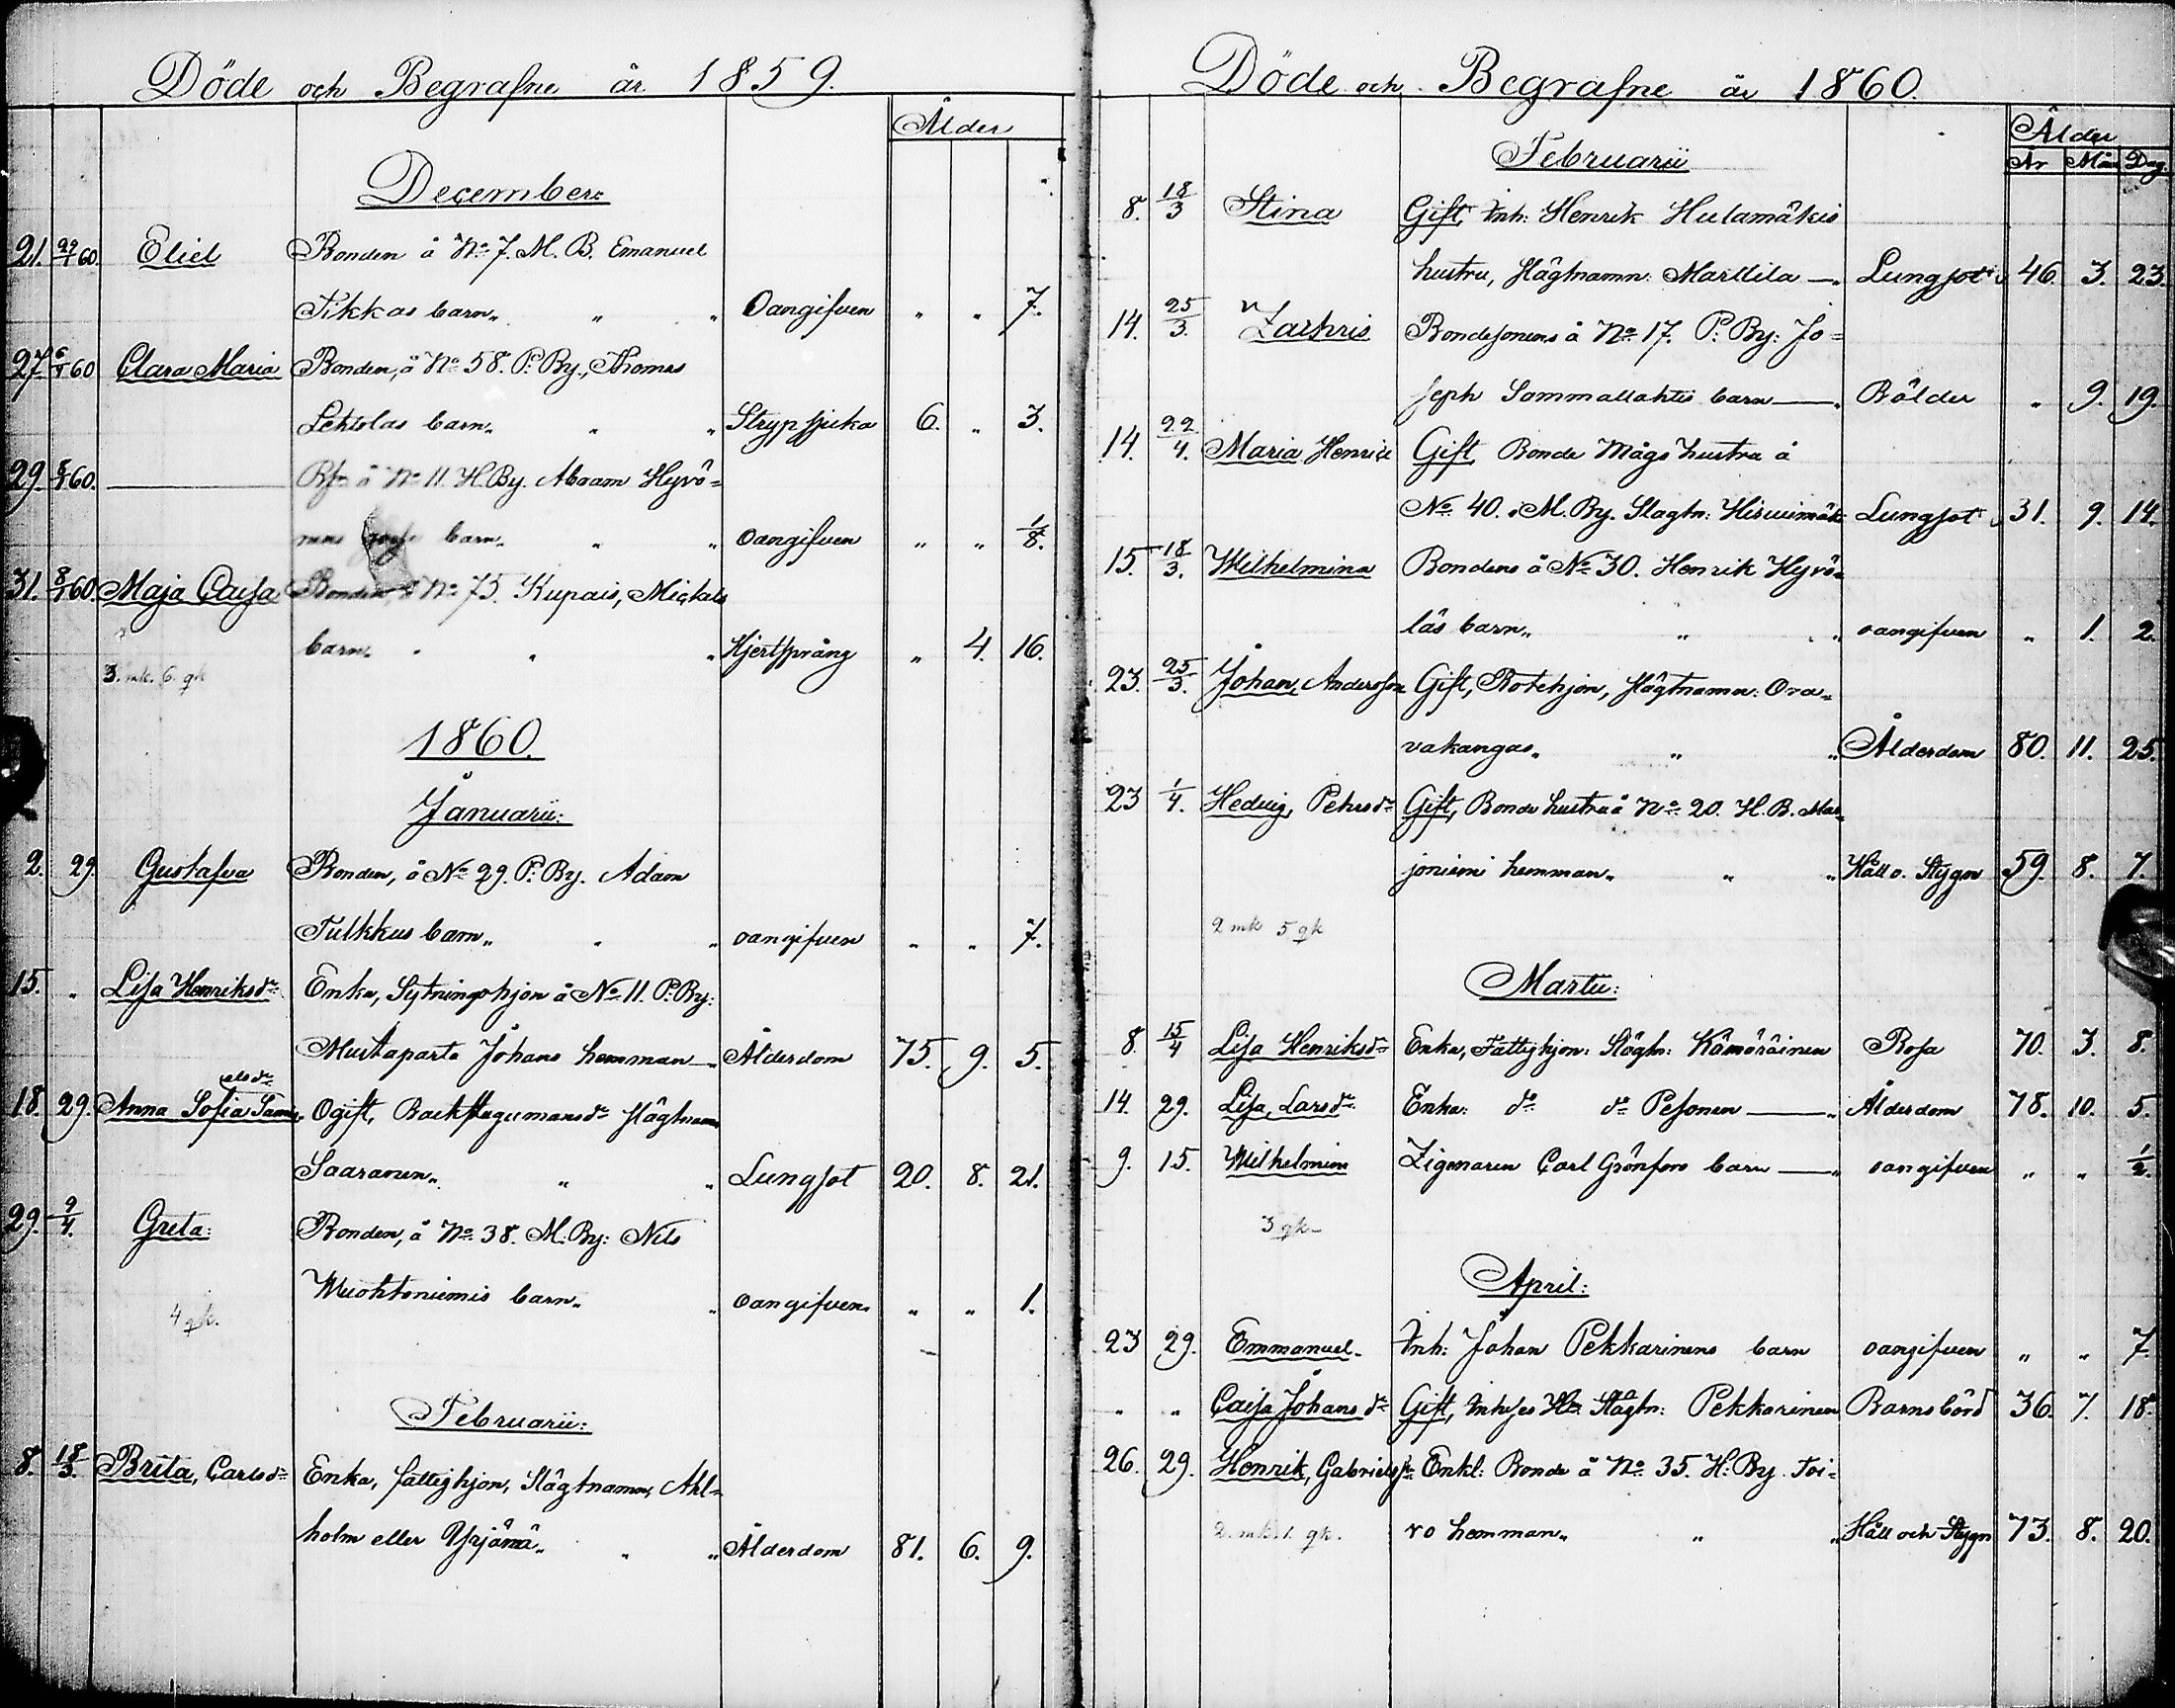 Döde och Begrafne år 1859.
Ålder
December:
21. 29/1 60. Eliel Bonden å No 7. M. B. Emanuel
Tikkas barn „ „ „ Oangifven „ „ 7.
27. 6/1 60 Clara Maria Bonden, å No 58. P. By., Thomas
Lehtolas barn „ „ „ Strypsjuka 6. „ 3.
29. 8/1 60. — å No 11. H. By. Abram Hyvö-
nens barn „ „ „ oangifven „ „ 1/8.
31. 8/1 60. Maja Caisa Bonden, å No 75. Kupais, Michels
barn „ „ „ Hjertsprång „ 4. 16.
3. mk. 6. qk
1860.
Januarii:
2. 29. Gustafva Bonden, å No 29. P. By. Adam
Tulkkus barn „ „ „ oangifven „ „ 7.
15. „ Lisa Henriksdr Enka, Sytningshjon å No 11. P. By:
Mustaparta Johans hemman — Ålderdom 75. 9. 5.
elsdr
18. 29. Anna Sofia Samu- Ogift, Backstugumansdr Slägtnamn
Saaranen „ „ „ Lungsot 20. 8. 21.
29. 9/4. Greta: Bonden, å No 38. M. By: Nils
Wuohtoniemis barn „ „ oangifven „ „ 1.
4 qk.
Februarii:
8. 18/3. Brita, Carlsdr Enka, fattighjon, Slägtnamn, Ahl-
holm eller Yrjänä „ „ „ Ålderdom 81. 6. 9.
Döde och Begrafne år 1860.
Ålder
Februarii
År Mån Dag.
8. 18/3 Stina Gift, Inh: Henrik Hulamäkis
hustru, Slägtnamn: Marttila — Lungsot 46. 3. 23.
14. 25/3. Zachris Bondesonens å No 17. P. By: Jo-
seph Sammallahtis barn — Bölder „ 9. 19.
14. 22/4. Maria Henric Gift Bonde Mågs hustru å
No 40. M. By. Slagtn: Hirvimäk Lungsot 31. 9. 14.
15. 18/3. Wilhelmina Bondens å No 30. Henrik Hyvö-
läs barn „ „ „ oangifven „ 1. 2.
23. 25/3. Johan, Andersson Gift, Rotehjon, Slägtnamn: Ora-
vakangas „ „ „ Ålderdom 80. 11. 25.
23 1/4. Hedvig, Pehrsdr Gift, Bonde hustru å No 20. H. B. Mar-
joniemi hemman „ „ „ Håll o. Stygn 59. 8. 7.
2 mk 5 qk
Martii:
8. 15/4 Lisa Henriksdr Enka, Fattighjon: Slägtn: Kämäräinen Rosa 70. 3. 8.
14. 29. Lisa, Larsdr Enka: do do Pesonen — Ålderdom 78. 10. 5.
9. 15. Wilhelmina Zigenaren Carl Grönfors barn — oangifven „ „ 1/2.
3 qk
April:
23 29. Emmanuel Inh: Johan Pekkarinens barn oangifven „ „ 7.
„ „ Caisa Johansdr Gift, Inhyses Slägtn: Pekkarinen Barnsbörd 36. 7. 18.
26. 29. Henrik, Gabrielsson Enkl: Bonde å No 35. H. By. Toi-
2. mk. 1. qk. vo hemman „ „ „ Håll och Stygn 73. 8. 20.